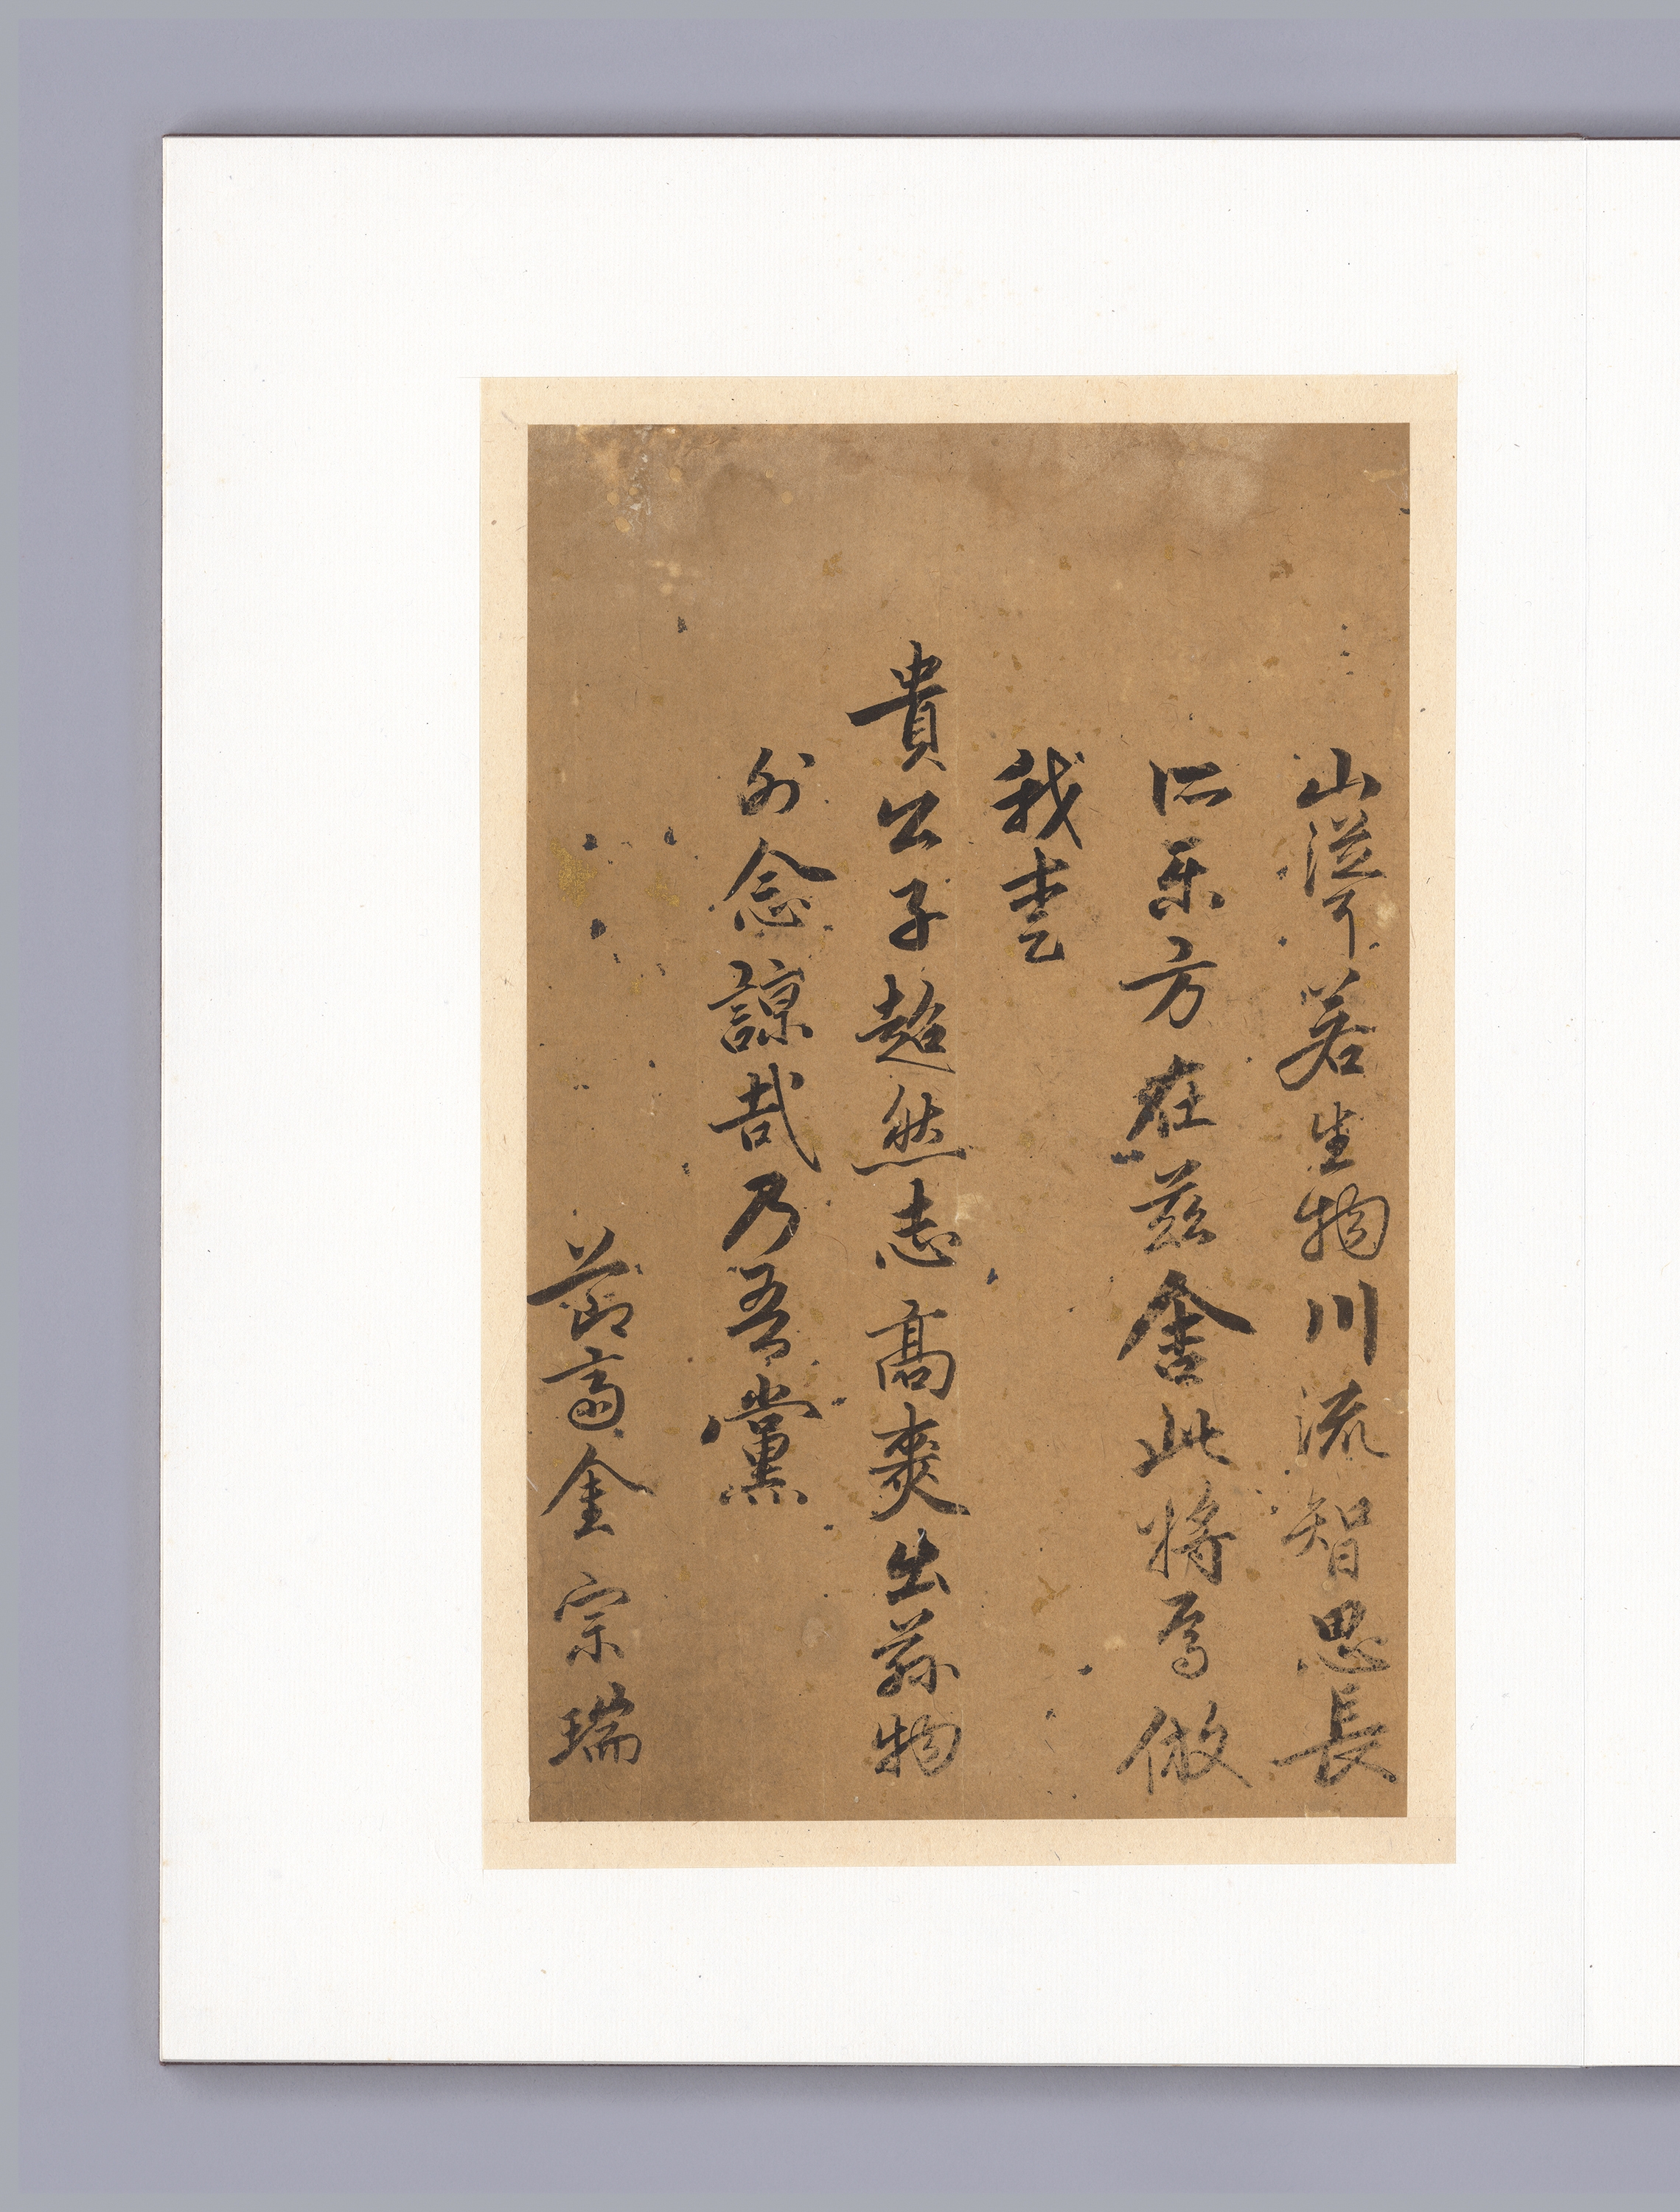 山若生物川流智思長
所樂方在茲舍此將焉倣
我
貴公子超然志高爽出物
外念諒哉乃吾黨
節齋金宗瑞